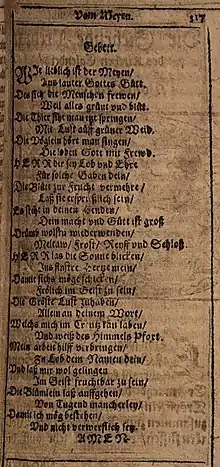 Vom Meyen. 317
Gebett.
WIe lieblich ist der Meyen/
Aus lauter Gottes Gütt.
Des sich die Menschen frewen/
Weil alles grünt und blüht.
Die Thier siht man itzt springen/
Mit Lust auff grüner Weid.
Die Vöglein hört man singen/
Die loben Gott mit Frewd.
HERR dir sey Lob und Ehre
Für solche Gaben dein/
Die Blüt zur Frucht vermehre/
Laß sie ersprißlich sein/
Es steht in deinen Henden/
Dein macht und Gütt ist groß
Drumb wolstu
Meltaw/ Frost/ Reyff und Schloß.
HERR las die Sonne blicken/
Ins finstre Hertze mein/
Damit sichs möge schicken/
Frölich im Geist zu sein/
Die Gröste Lust zu haben/
Allein an deinem Wort/
Welchs mich im Creutz kan laben/
Und weist des Himmels Pfort.
Mein arbeit hilff verbringen/
Zu Lob dem Namen dein/
Und laß mir wol gelingen
Im Geist fruchtbar zu sein/
Die Blümlein laß auffgehen/
Von Tugend mancherley/
Damit ich mög bestehen/
Und nicht verwerflich sey.
AMEN.